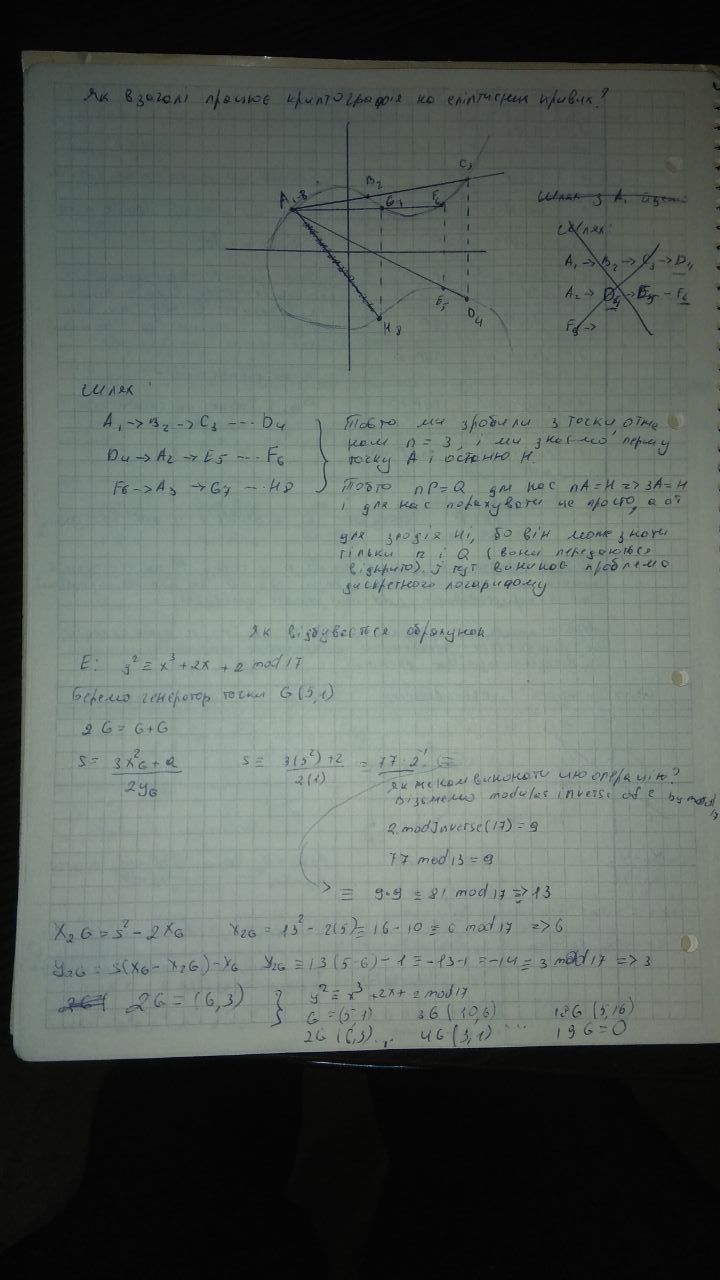 Як взагалі працює криптографія на еліптичних кривих?
C3
B2
A1-8
G7
F6
E5
D4
H8
Шлях з A1
Шлях:
A1 → B2 → C3 → D4
A2 → D4 → E5 - F6
F6 →
Шлях:
A1 → B2 → C3 --- D4
D4 → A2 → E5 --- F6
F6 → A3 → G7 --- H8
Тобто ми зробили з точки, отже
ном n = 3, і ми знаємо першу
точку A і останню H.
Тобто nP = Q для нас nA = H => 3A = H
і для нас порахувати це просто, а от
для злодія ні, бо він може знати
тільки n і Q (вони передаються
відкрито). І тут виникає проблема
дискретного логаридому
Як відбувається обрахунок
E: y² ≡ x³ + 2x + 2 mod 17
Беремо генератор точки G(5,1)
2G = G + G
S = 3x²G + a / 2yG S ≡ 3(5²) + 2 / 2(1) = 77 · 2⁻¹ ≡
Як же нам виконати цю операцію?
Візьмемо modulas inverse of 2 by mod 17
2. modInverse(17) = 9
77 mod 13 = 9
≡ 9·9 ≡ 81 mod 17 => 13
X2G = S² - 2XG X2G = 13² - 2(5) ≡ 16 - 10 ≡ 6 mod 17 => 6
Y2G = S(XG - X2G) - YG Y2G ≡ 13(5-6) - 1 ≡ -13-1 ≡ -14 ≡ 3 mod 17 => 3
2G = (6,3) } y² ≡ x³ + 2x + 2 mod 17
G = (5,1) 3G (10,6) 18G (5,16)
2G (6,3)... 4G (3,1) ... 19G = O